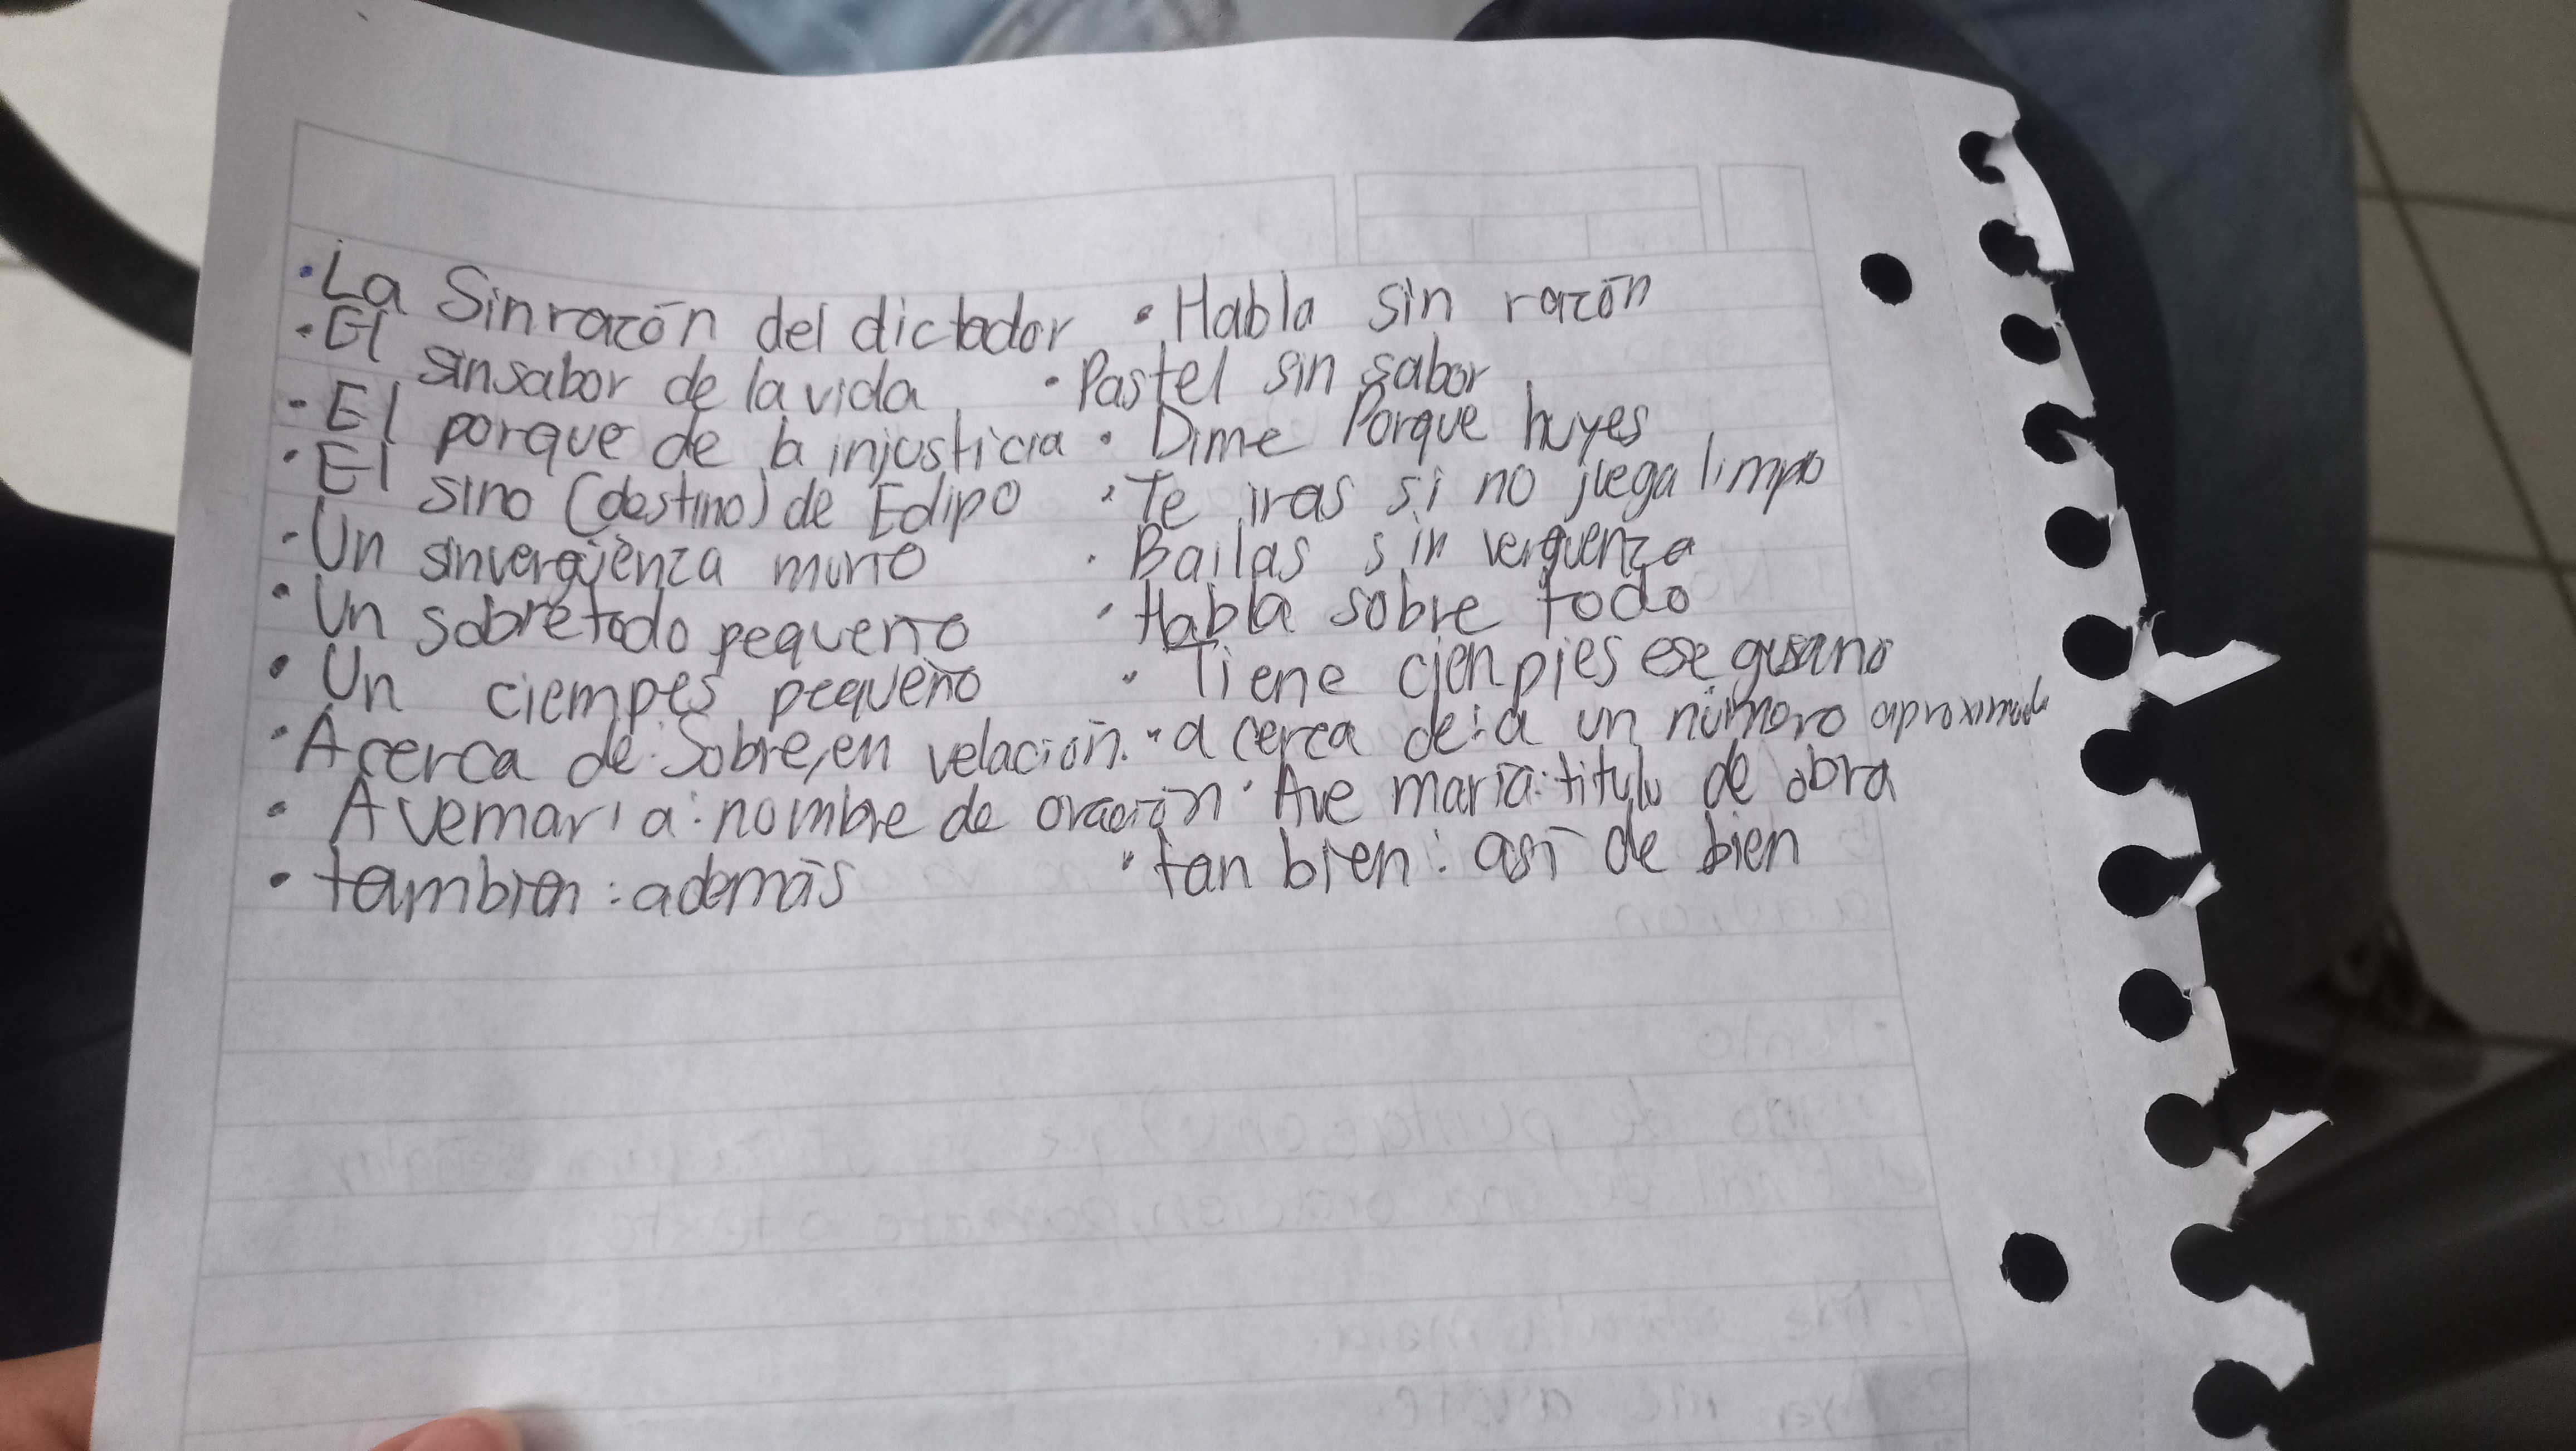 · La Sinrazón del dictador · Habla sin razón
· El sinsabor de la vida · Pastel sin sabor
- El porque de la injusticia · Dime Porque huyes
· El sino (destino) de Edipo · Te iras si no juega limpio
· Un sinvergüenza murio · Bailas sin verguenza
· Un sobretodo pequeño · Habla sobre todo
· Un ciempes pequeño · Tiene cien pies ese gusano
· Acerca de: Sobre, en relación. · a cerca de: a un número aproximado
· Avemaria: nombre de oración · Ave maría: titulo de obra
· tambien: además · tan bien: así de bien